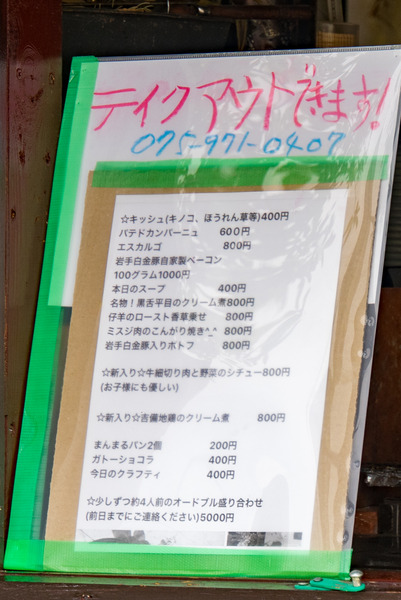 テイクアウトできます!
075-971-0407
☆キッシュ(キノコ、ほうれん草等)400円
パテドカンパーニュ 600円
エスカルゴ 800円
岩手白金豚自家製ベーコン
100グラム1000円
本日のスープ 400円
名物!黒舌平目のクリーム煮800円
仔羊のロースト香草乗せ 800円
ミスジ肉のこんがり焼き^_^ 800円
岩手白金豚入りポトフ 800円
☆新入り☆牛細切り肉と野菜のシチュー800円
(お子様にも優しい)
☆新入り☆吉備地鶏のクリーム煮 800円
まんまるパン2個 200円
ガトーショコラ 400円
今日のクラフティ 400円
☆少しずつ約4人前のオードブル盛り合わせ
(前日までにご連絡ください)5000円